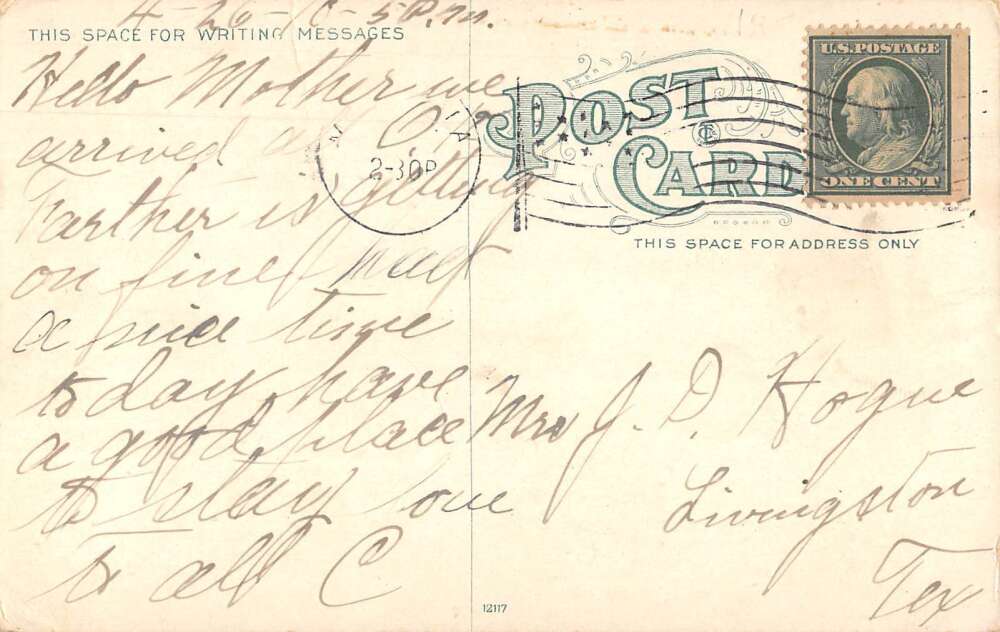 4-26-10-5 P.m.
THIS SPACE FOR WRITING MESSAGES
Hello Mother we
arrived at O.K.
Farther is getting
on fine had
a nice time
to day have
a good place
to stay love
to all C
2-30P
POST
CARD
U.S. POSTAGE
ONE CENT
THIS SPACE FOR ADDRESS ONLY
Mrs J. D. Hogue
Livingston
Tex
12117